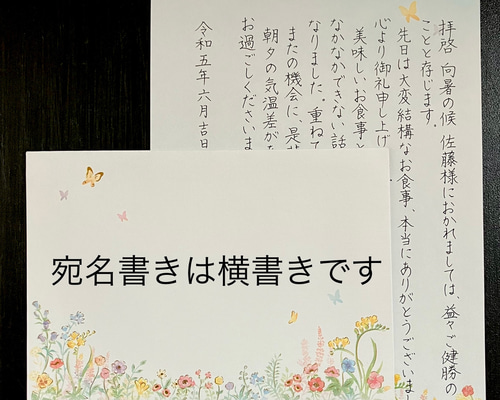 拝啓 向暑の候 佐藤様におかれましては、益々ご健勝の
ことと存じます。
先日は大変結構なお食事、本当にありがとうございま
心より御礼申し上げ
美味しいお食事と
なかなかできない話
なりました。重ねて
またの機会に、是非
朝夕の気温差が
お過ごしくださいま
令和五年六月吉日
宛名書きは横書きです